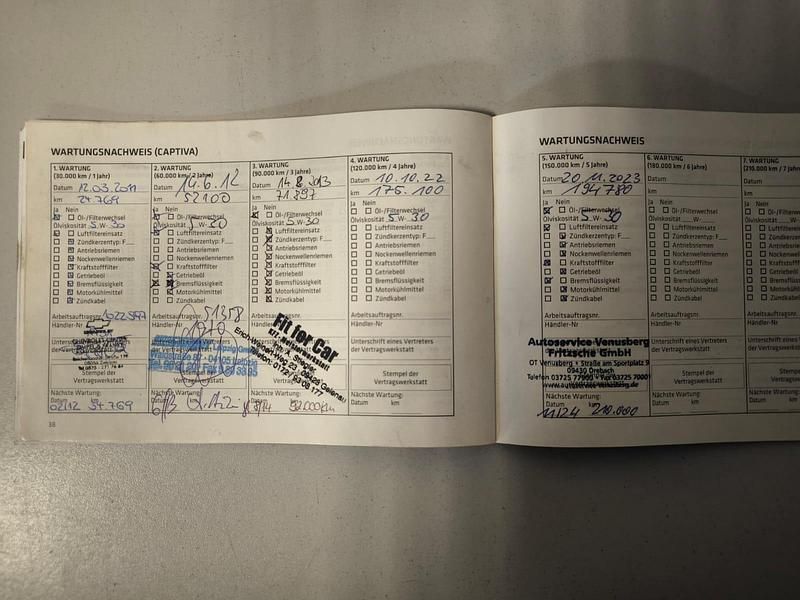 WARTUNGSNACHWEIS (CAPTIVA)
1. WARTUNG
(30.000 km / 1 Jahr)
Datum 12.03.2011
km 24.769
Ja Nein
Öl-/Filterwechsel
Ölviskosität 5 W-30
Luftfiltereinsatz
Zündkerzentyp: F
Antriebsriemen
Nockenwellenriemen
Kraftstofffilter
Getriebeöl
Bremsflüssigkeit
Motorkühlmittel
Zündkabel
Arbeitsauftragsnr.
Händler-Nr
Stempel der
Vertragswerkstatt
Nächste Wartung:
Datum km
02/12 54.769
2. WARTUNG
(60.000 km / 2 Jahre)
Datum 14.6.12
km 52100
Ja Nein
Öl-/Filterwechsel
Ölviskosität W-
Luftfiltereinsatz
Zündkerzentyp: F
Antriebsriemen
Nockenwellenriemen
Kraftstofffilter
Getriebeöl
Bremsflüssigkeit
Motorkühlmittel
Zündkabel
Arbeitsauftragsnr. 51358
Händler-Nr
Stempel der
Vertragswerkstatt
Nächste Wartung:
3. WARTUNG
(90.000 km / 3 Jahre)
Datum 14.8.2013
km 71.397
Ja Nein
Öl-/Filterwechsel
Ölviskosität 5 W-30
Luftfiltereinsatz
Zündkerzentyp: F
Antriebsriemen
Nockenwellenriemen
Kraftstofffilter
Getriebeöl
Bremsflüssigkeit
Motorkühlmittel
Zündkabel
Arbeitsauftragsnr.
Händler-Nr
Fit for Car
Kfz.-Meisterwerkstatt
Nächste Wartung:
4. WARTUNG
(120.000 km / 4 Jahre)
Datum 10.10.22
km 175.100
Ja Nein
Öl-/Filterwechsel
Ölviskosität 5 W-30
Luftfiltereinsatz
Zündkerzentyp: F
Antriebsriemen
Nockenwellenriemen
Kraftstofffilter
Getriebeöl
Bremsflüssigkeit
Motorkühlmittel
Zündkabel
Arbeitsauftragsnr.
Händler-Nr
Unterschrift eines Vertreters
der Vertragswerkstatt
Stempel der
Vertragswerkstatt
Nächste Wartung:
Datum km
38
WARTUNGSNACHWEIS
5. WARTUNG
(150.000 km / 5 Jahre)
Datum 20.11.2023
km 194780
Ja Nein
Öl-/Filterwechsel
Ölviskosität 5 W-30
Luftfiltereinsatz
Zündkerzentyp: F
Antriebsriemen
Nockenwellenriemen
Kraftstofffilter
Getriebeöl
Bremsflüssigkeit
Motorkühlmittel
Zündkabel
Arbeitsauftragsnr.
Händler-Nr
Autoservice Venusberg
Fritzsche GmbH
OT Venusberg • Straße am Sportplatz 9
09430 Drebach
Telefon 03725 77900 • Fax 03725 70001
Nächste Wartung:
Datum km
11/24 210.000
6. WARTUNG
(180.000 km / 6 Jahre)
Datum
km
Ja Nein
Öl-/Filterwechsel
Ölviskosität W-
Luftfiltereinsatz
Zündkerzentyp: F
Antriebsriemen
Nockenwellenriemen
Kraftstofffilter
Getriebeöl
Bremsflüssigkeit
Motorkühlmittel
Zündkabel
Arbeitsauftragsnr.
Händler-Nr
Unterschrift eines Vertreters
der Vertragswerkstatt
Stempel der
Vertragswerkstatt
Nächste Wartung:
Datum km
7. WARTUNG
(210.000 km / 7 Jahre)
Datum
km
Ja Nein